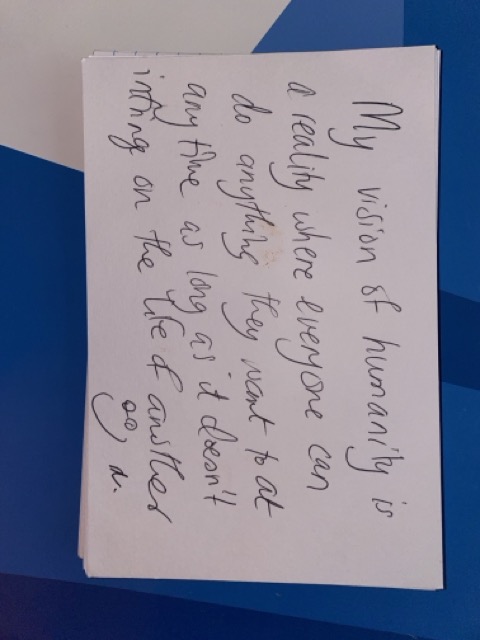 My vision of humanity is
a reality where everyone can
do anything they want to at
any time as long as it doesn't
infring on the life of another